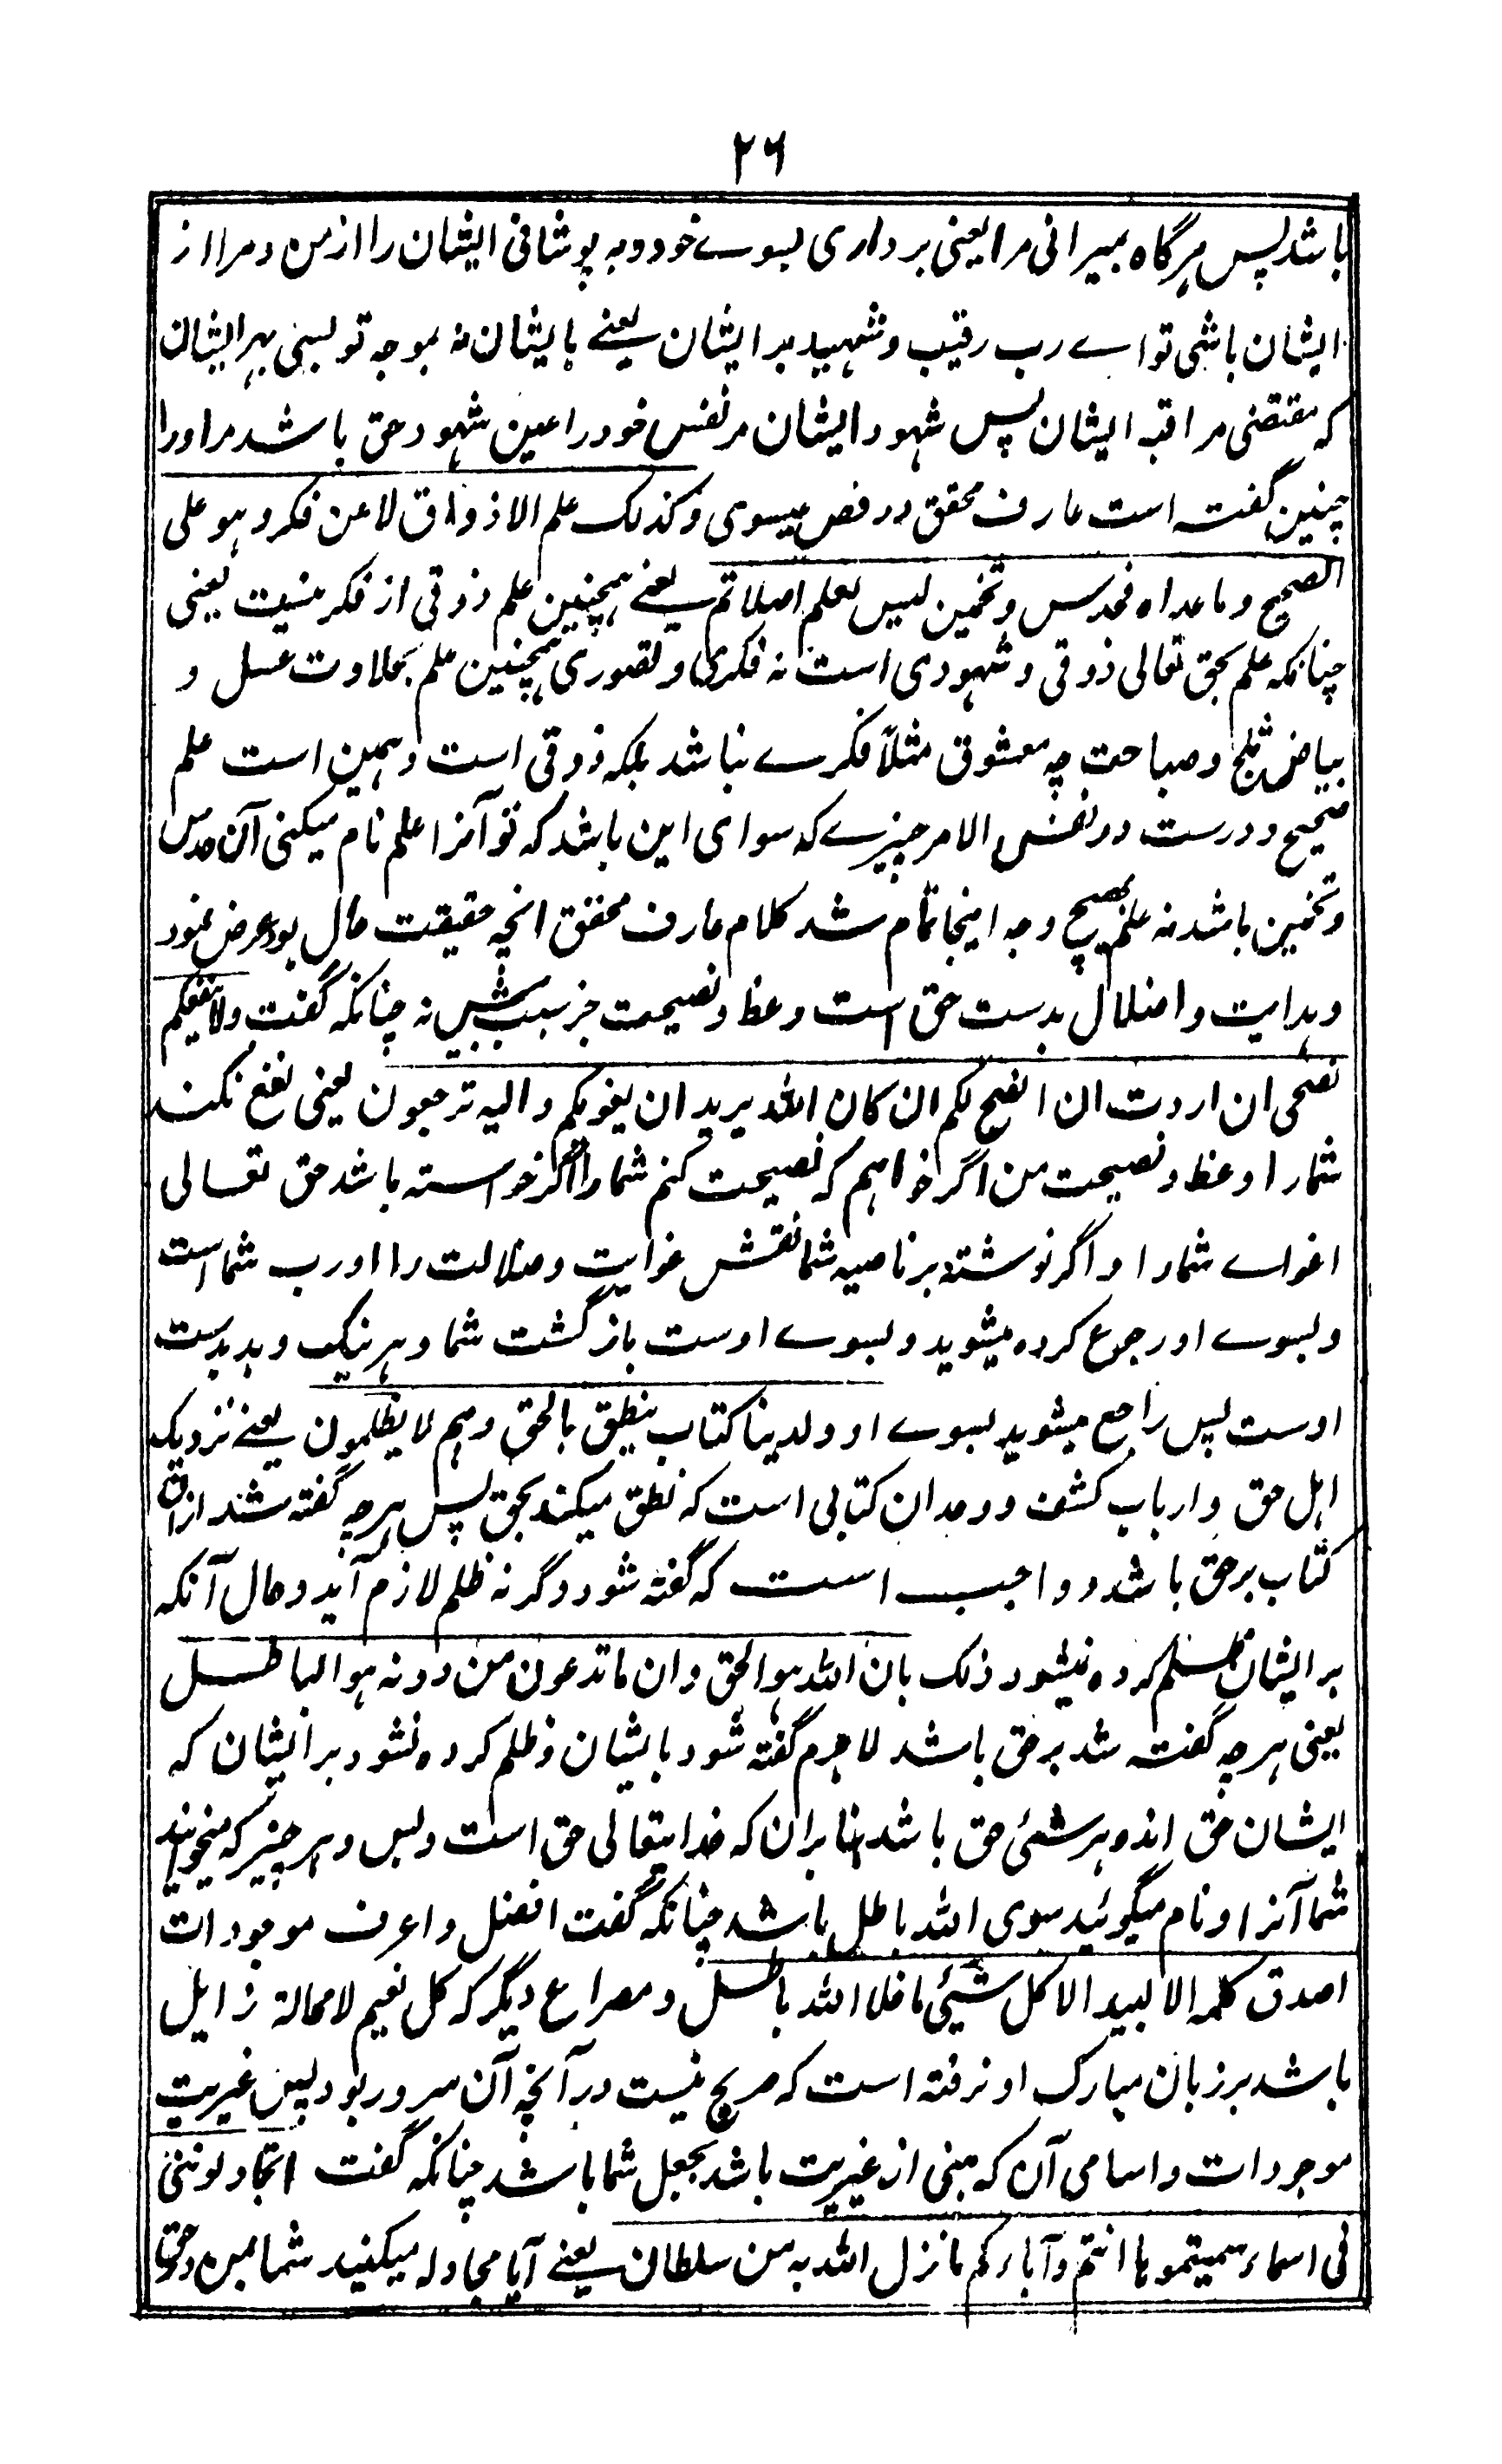 ۲۶
باشد پس هرگاه بمیرانی مرا یعنی برداری بسوے خود و به پوشانی ایشان را از من و مرا از
ایشان باشی تو اے رب رقیب و شهید بر ایشان یعنے بایشان نه بموجه تو لیسی بهر ایشان
که مقتضی مراقبه ایشان پس شهود ایشان مر نفس خود را عین شهود حق باشد مر او را
چنین گفته است عارف محقق در فص عیسوی و کذلک علم الاذواق لا عن فکر و هو علی
الصحیح و ما عداه فحدس و تخمین لیس بعلم اصلا تم یعنے همچنین علم ذوقی از فکر نیست یعنی
چنانکه علم بحق تعالی ذوقی و شهودی است نه فکری و تصوری همچنین علم بحلاوت عسل و
بیاض ثلج و صباحت چه معشوق مثلاً فکرے نباشد بلکه ذوقی است و همین است علم
صحیح و درست در نفس الامر چیزے که سوای این باشد که تو آنرا علم نام میکنی آن حدس
و تخمین باشد نه علم صحیح وجه اینجا تمام شد کلام عارف محقق انچه حقیقت حال بود عرض نمود
و هدایت و اضلال بدست حق است وعظ و نصیحت جز سبب بیش نه چنانکه گفت ولا ینفعکم
نصحی ان اردت ان انصح لکم ان کان الله یرید ان یغویکم و الیه ترجعون یعنی نفع نکند
شمارا وعظ و نصیحت من اگر خواهم که نصیحت کنم شما را اگر خواسته باشد حق تعالی
اغواے شمارا و اگر نوشته بر ناصیه شما نقش غوایت و ضلالت را او رب شما است
و بسوے او رجوع کرده میشوید و بسوے اوست بازگشت شما و هر نیک و بد بدست
اوست پس راجع میشوید بسوے او ولدینا کتاب ینطق بالحق و هم لا یظلمون یعنے نزدیک
اهل حق و ارباب کشف و وجدان کتابی است که نطق میکند بحق پس هرچه گفته شد ازان
کتاب برحق باشد و واجب است که گفته شود وگرنه ظلم لازم آید و حال آنکه
بر ایشان ظلم کرده نمیشود ذلک بان الله هو الحق وان ما تدعون من دونه هو الباطل
یعنی هرچه گفته شد برحق باشد لاجرم گفته شود بایشان و ظلم کرده نشود بر ایشان که
ایشان حق اند و هر شئی حق باشد بنا بران که خدایتعالی حق است و بس و هر چیز که میخوانید
شما آنرا و نام میگوئید سوی الله باطل باشد چنانکه گفت افضل و اعرف موجودات
اصدق کلمه الا لبید الا کل شیئ ما خلا الله باطل و مصراع دیگر که کل نعیم لا محالة زایل
باشد بر زبان مبارک او نرفته است که صریح نیست در آنچه آن سرور بود پس غیریت
موجودات و اسامی آن که مبنی از غیریت باشد بجعل شما باشد چنانکه گفت اتجادلوننی
فی اسماء سمیتموها انتم و آباءکم ما نزل الله به من سلطان یعنے آیا مجادله میکنید شما بمن در حق